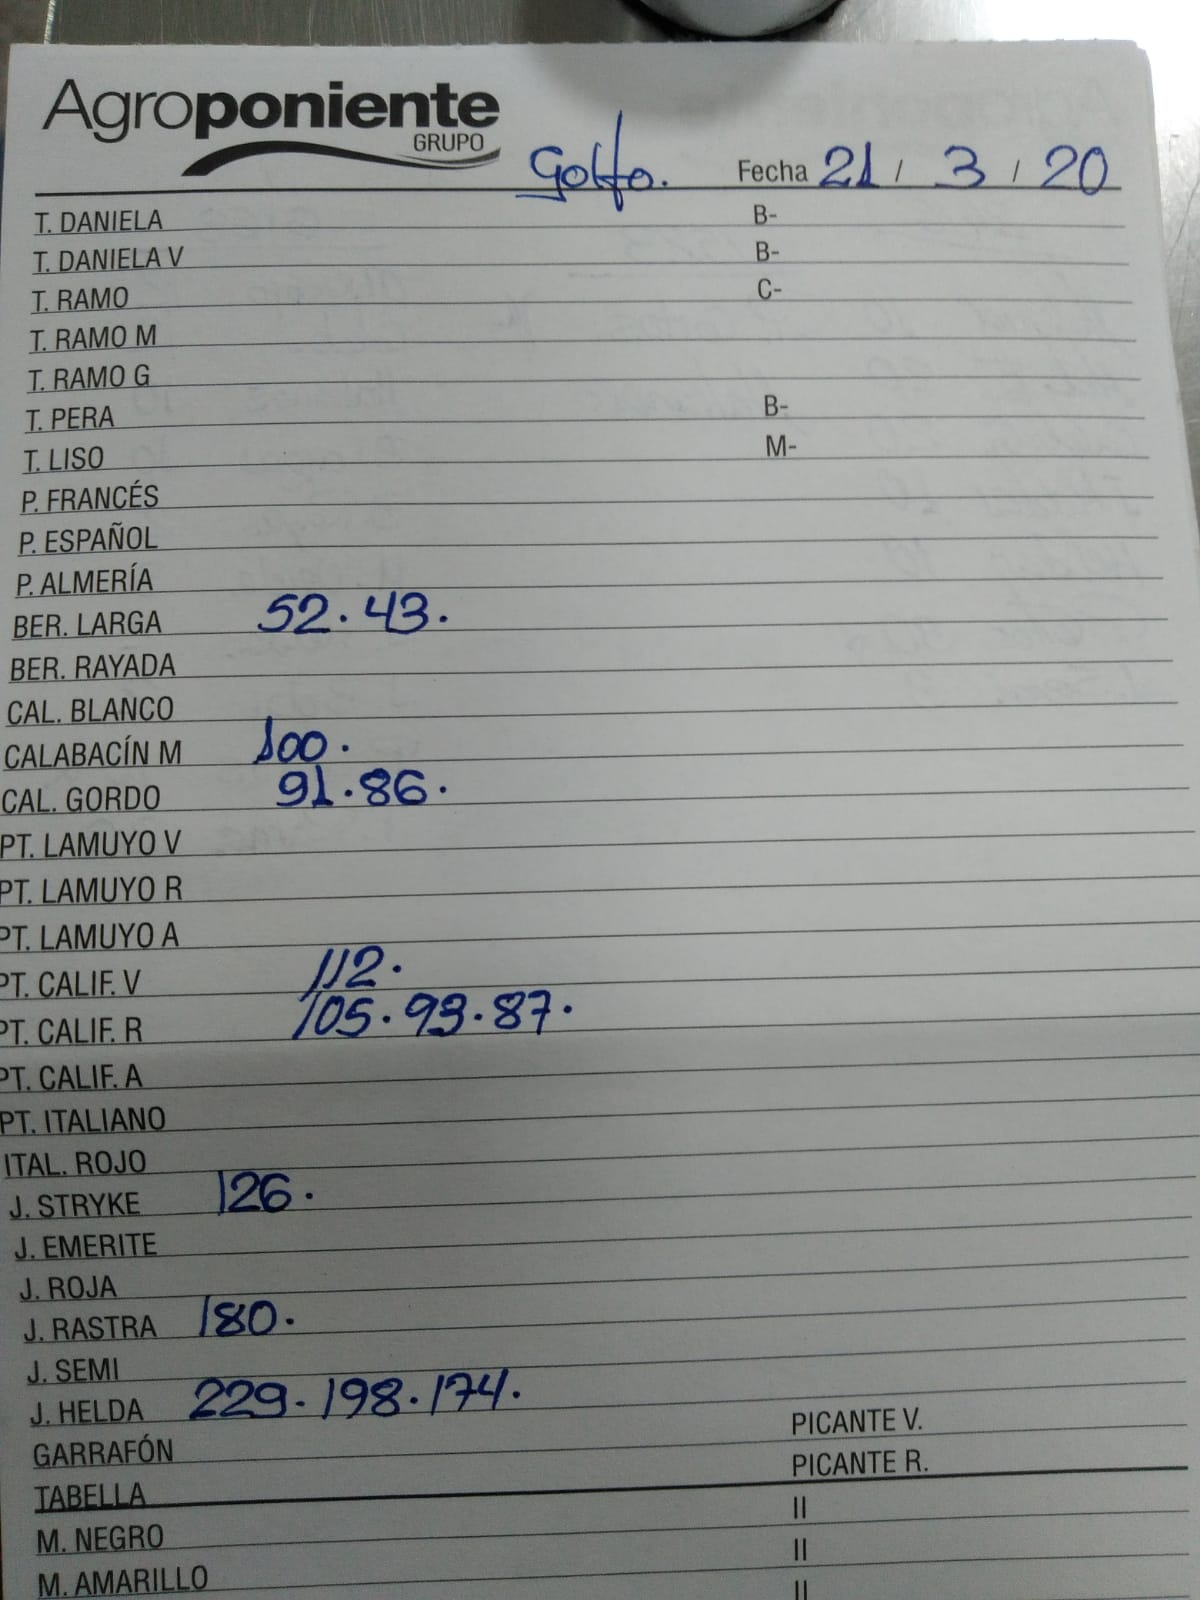 Agroponiente
GRUPO
Golfo. Fecha 21 / 3 / 20
T. DANIELA B-
T. DANIELA V B-
T. RAMO C-
T. RAMO M
T. RAMO G
T. PERA B-
T. LISO M-
P. FRANCÉS
P. ESPAÑOL
P. ALMERÍA
BER. LARGA 52. 43.
BER. RAYADA
CAL. BLANCO
CALABACÍN M 100.
CAL. GORDO 91.86.
PT. LAMUYO V
PT. LAMUYO R
PT. LAMUYO A
PT. CALIF. V 112.
PT. CALIF. R 105.93.87.
PT. CALIF. A
PT. ITALIANO
ITAL. ROJO
J. STRYKE 126.
J. EMERITE
J. ROJA
J. RASTRA 180.
J. SEMI
J. HELDA 229.198.174.
GARRAFÓN PICANTE V.
TABELLA PICANTE R.
M. NEGRO II
M. AMARILLO II
II